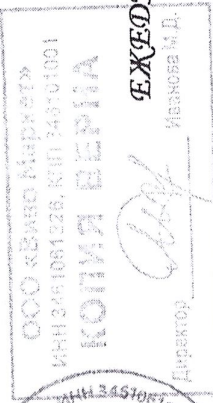 ООО «Вино Маркет»
ИНН 3461061326, КПП 346101001
КОПИЯ ВЕРНА
Директор Иванова М.Д.
ЕЖЕД
ИНН 3461061